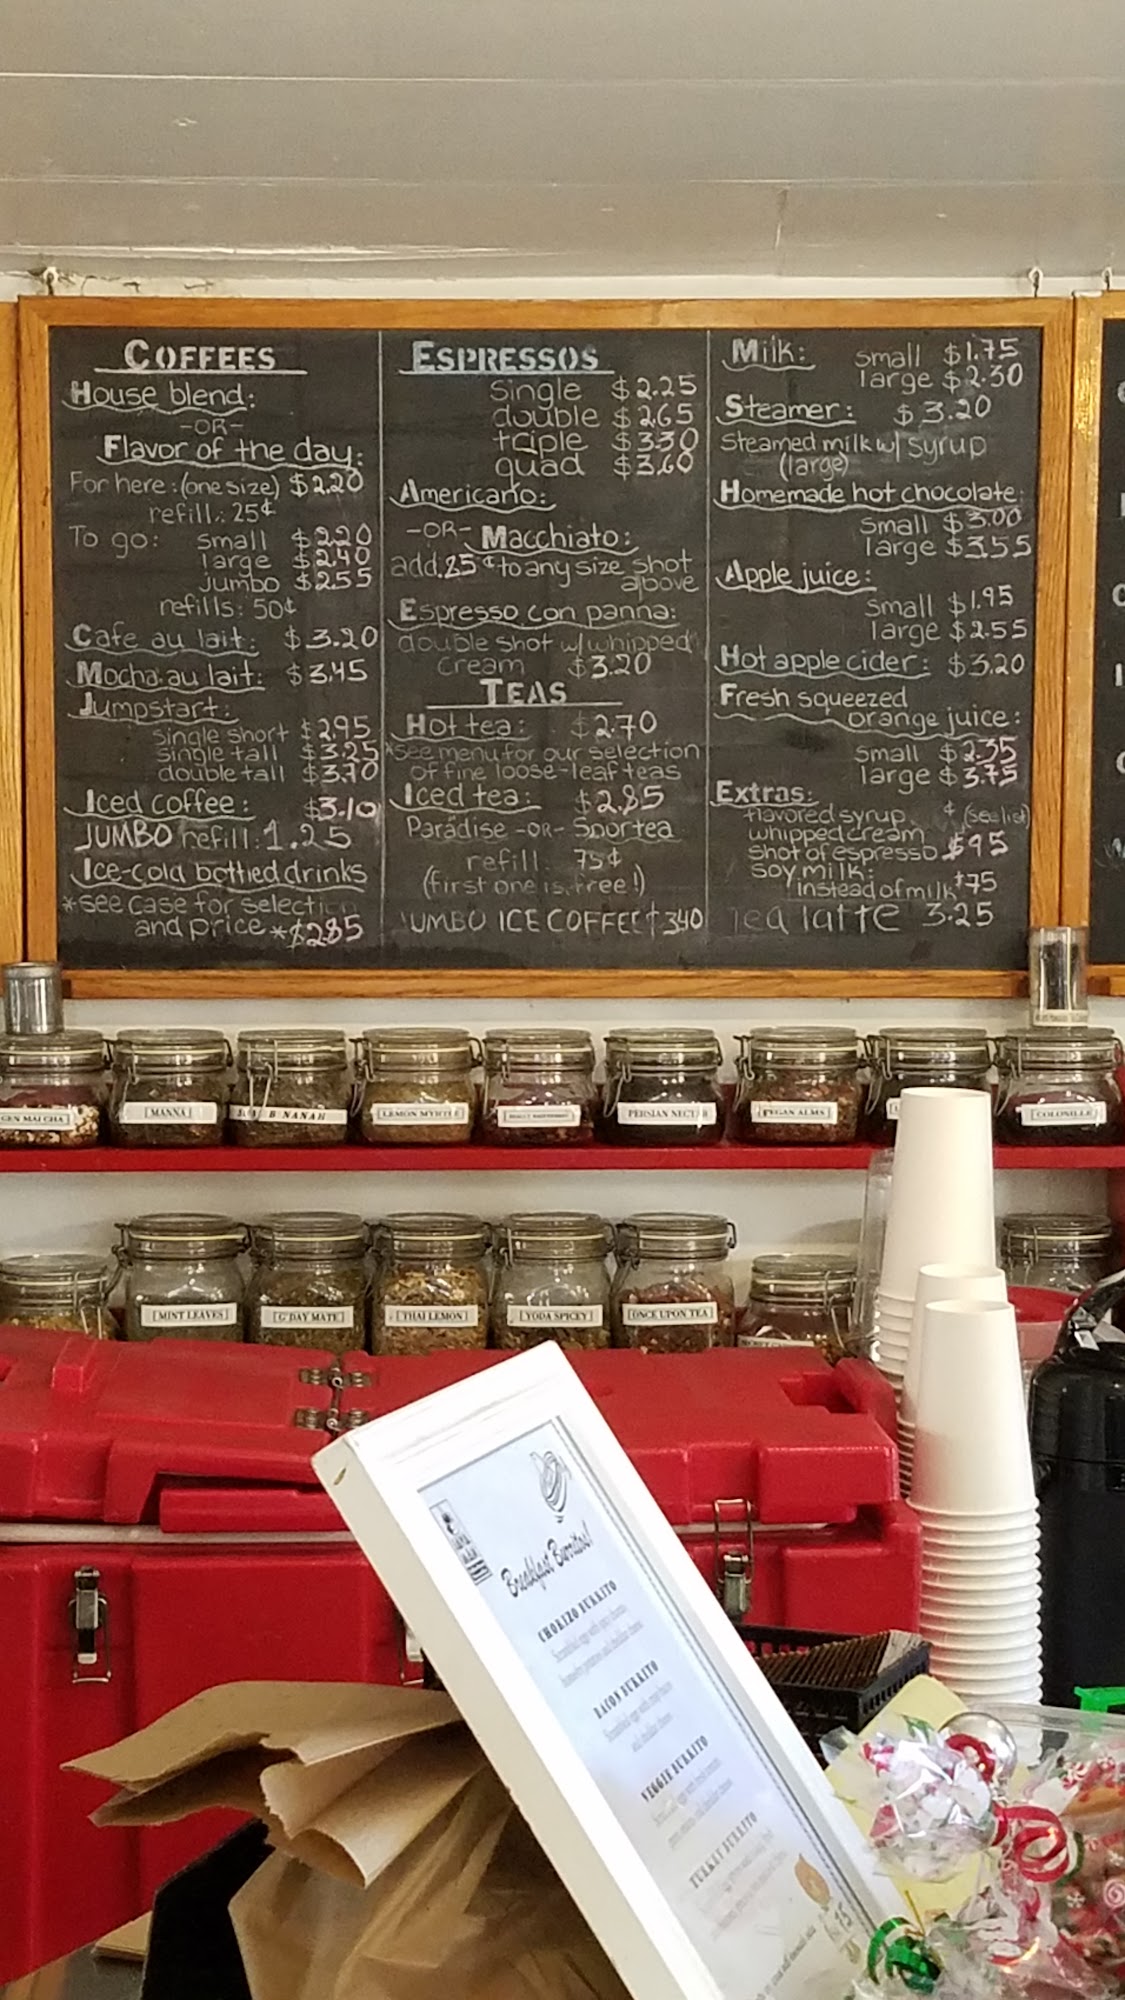 COFFEES
House blend:
-OR-
Flavor of the day:
For here: (one size) $2.20
refill: 25¢
To go: small $2.20
large $2.40
jumbo $2.55
refills: 50¢
Cafe au lait: $3.20
Mocha au lait: $3.45
Jumpstart:
single short $2.95
single tall $3.25
double tall $3.70
Iced coffee: $3.10
JUMBO refill: 1.25
Ice-cold bottled drinks
*see case for selection
and price * $2.85
ESPRESSOS
single $2.25
double $2.65
triple $3.30
quad $3.60
Americano:
-OR- Macchiato:
add .25¢ to any size shot
above
Espresso con panna:
double shot w/ whipped
cream $3.20
TEAS
Hot tea: $2.70
*see menu for our selection
of fine loose-leaf teas
Iced tea: $2.85
Paradise -OR- Sportea
refill: 75¢
(first one is free!)
JUMBO ICE COFFEE $3.40
Milk: small $1.75
large $2.30
Steamer: $3.20
Steamed milk w/ syrup
(large)
Homemade hot chocolate:
small $3.00
large $3.55
Apple juice:
small $1.95
large $2.55
Hot apple cider: $3.20
Fresh squeezed
orange juice:
small $2.35
large $3.75
Extras:
flavored syrup ¢ (see list)
whipped cream
shot of espresso $.95
soy milk:
instead of milk 75
Tea latte 3.25
GEN MAI CHA
MANNA
NANAH
LEMON MYRTLE
PERSIAN NECTAR
VEGAN ALMS
COLONILLE
MINT LEAVES
G'DAY MATE
THAI LEMON
YODA SPICEY
ONCE UPON TEA
Breakfast Burritos!
CHORIZO BURRITO
BACON BURRITO
VEGGIE BURRITO
TURKEY BURRITO